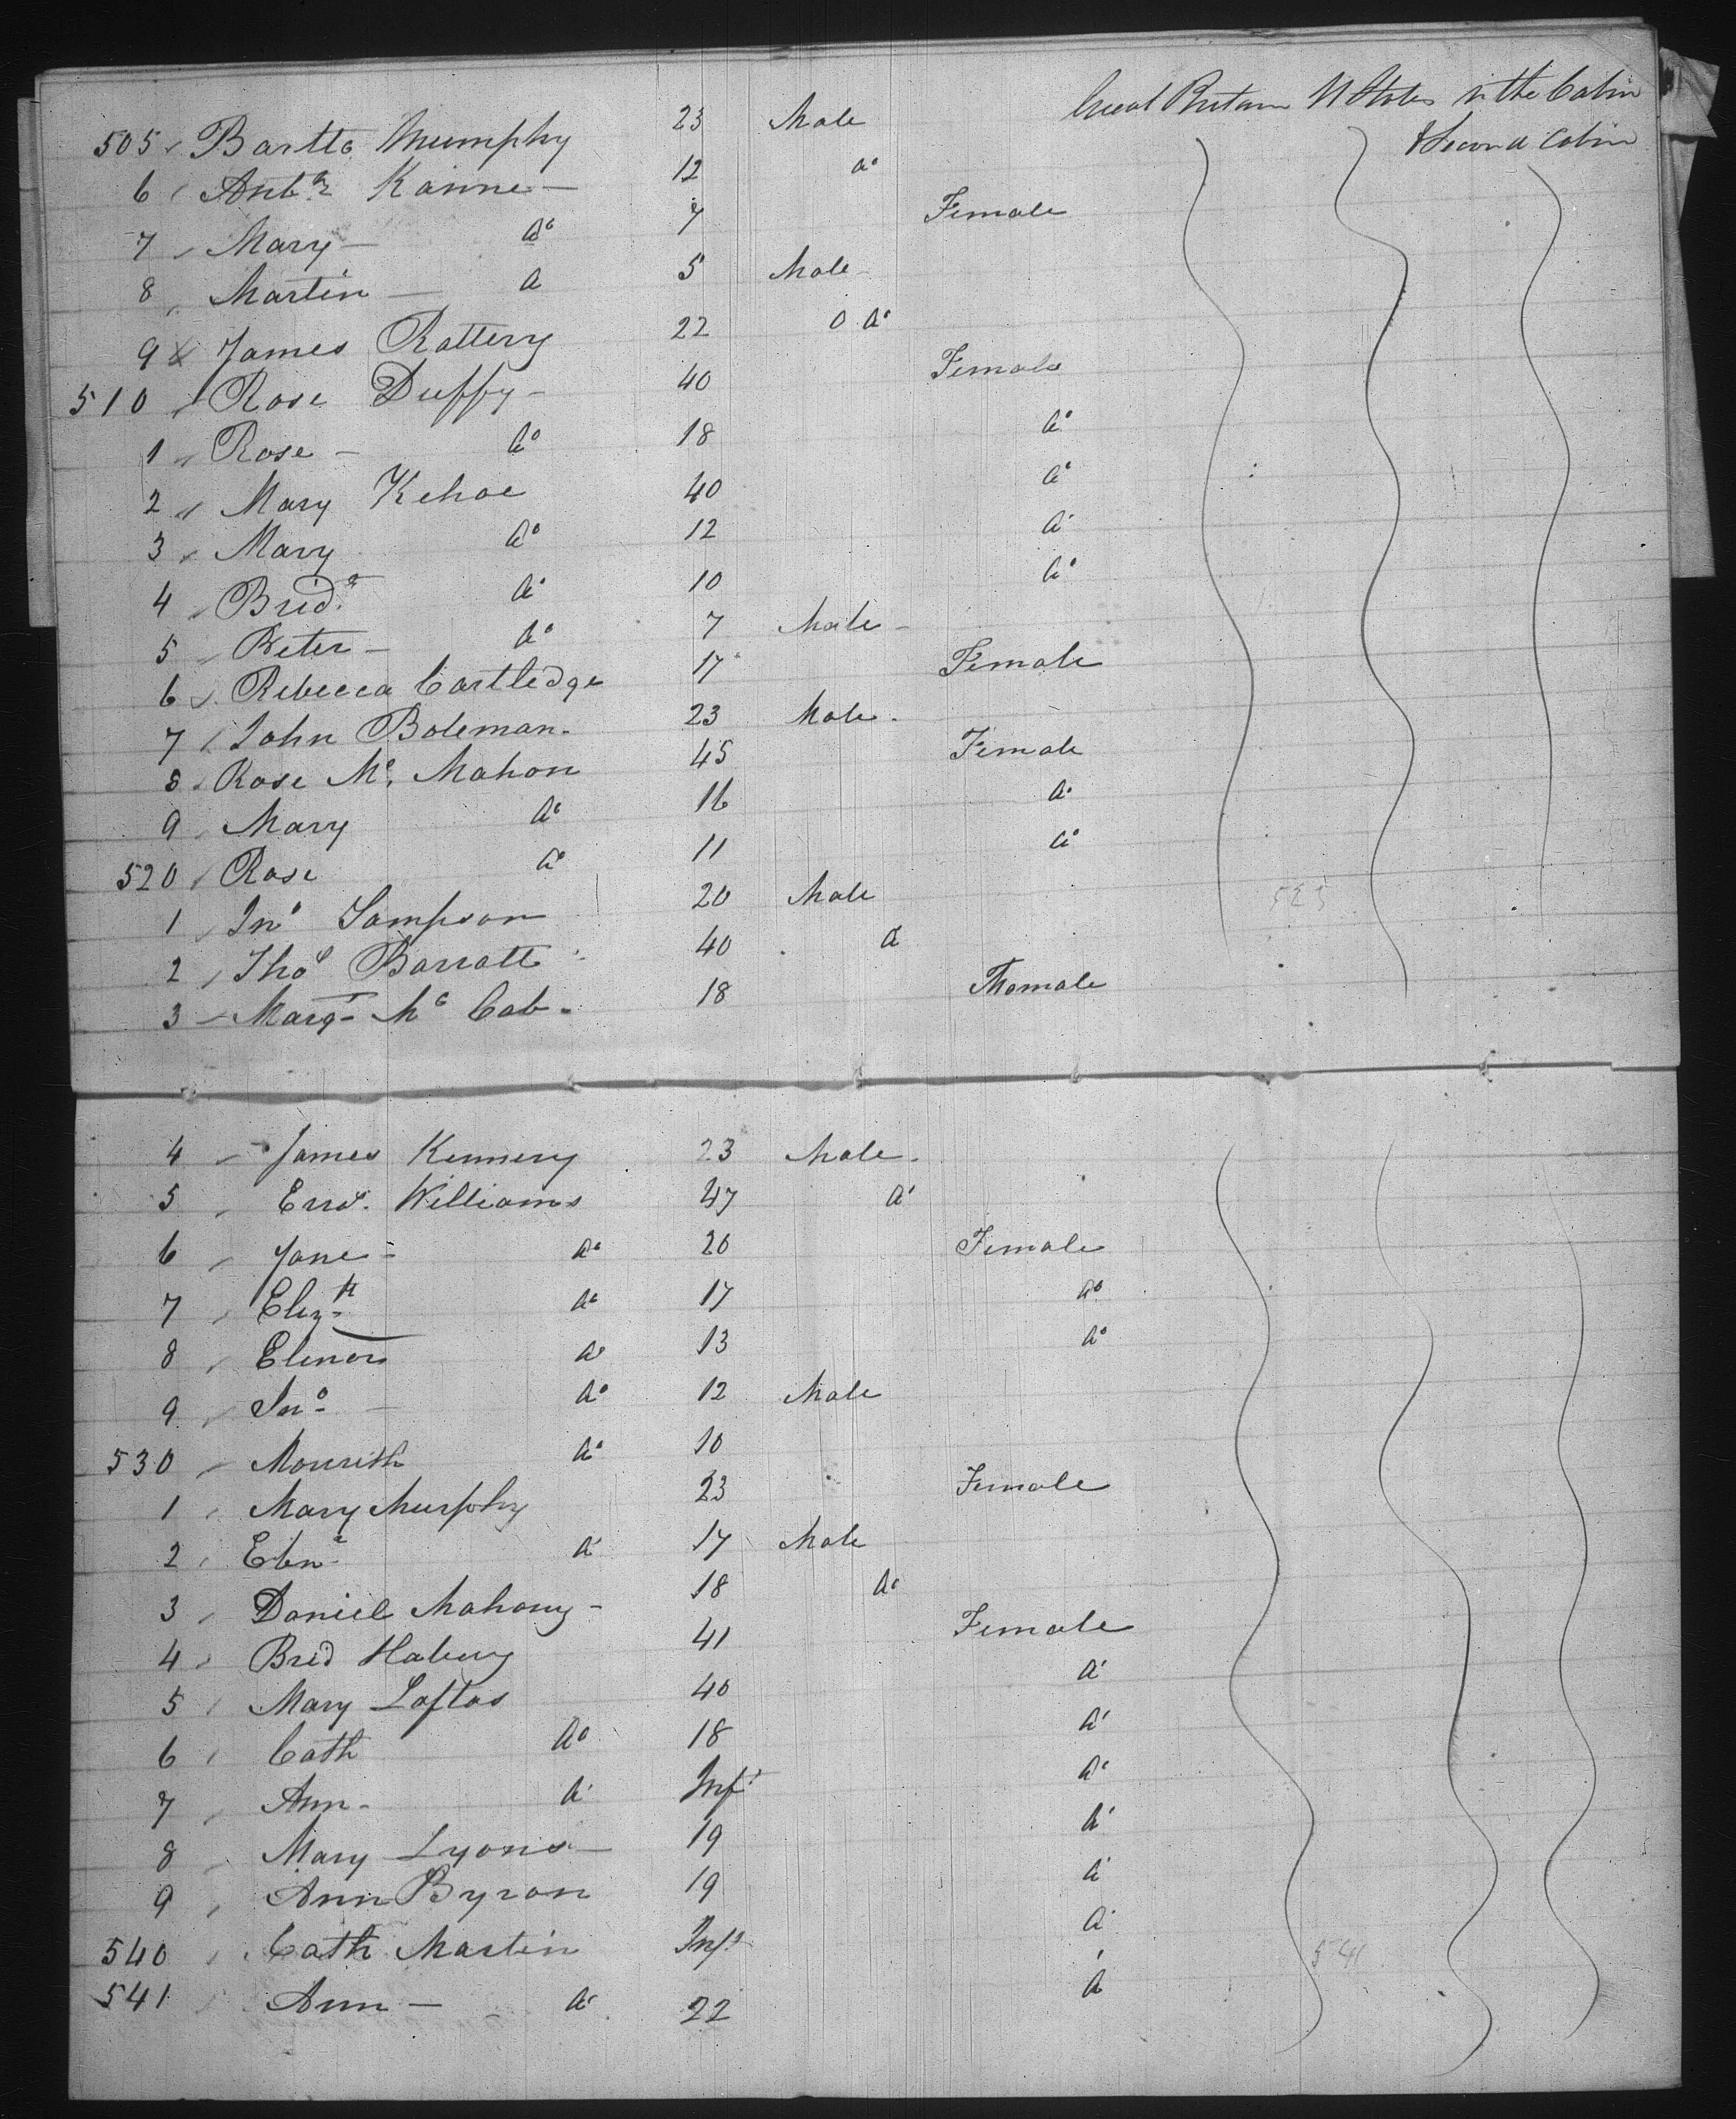 Great Britain U States in the Cabin
& Second Cabin
505 Bartte Mumphy 23 Male
6 Kanne 12 do
7 Mary do 7 Female
8 Martin do 5 Male
9 x James Rattery 22 do
510 Rose Duffy 40 Female
1 Rose do 18 do
2 Mary Kehoe 40 do
3 Mary do 12 do
4 Brid do 10 do
5 Peter do 7 Male
6 Rebecca Cartledge 17 Female
7 John Boleman 23 Male
8 Rose Mc Mahon 45 Female
9 Mary do 16 do
520 Rose do 11 do
1 Jno Sampson 20 Male 525
2 Thos Barratt 40 do
3 Margt Mc Cab 18 Female
4 James Kennery 23 Male
5 Williams 47 do
6 Jane do 20 Female
7 Elizth do 17 do
8 Elenor do 13 do
9 Jno do 12 Male
530 do 10
1 Mary Murphy 23 Female
2 Ebnr do 17 Male
3 Daniel Mahony 18 do
4 Brid 41 Female
5 Mary Loftas 40 do
6 Cath do 18 do
7 Ann do Inft do
8 Mary Lyons 19 do
9 Ann Byron 19 do
540 Cath Martin Inft do 541
541 Ann do 22 do